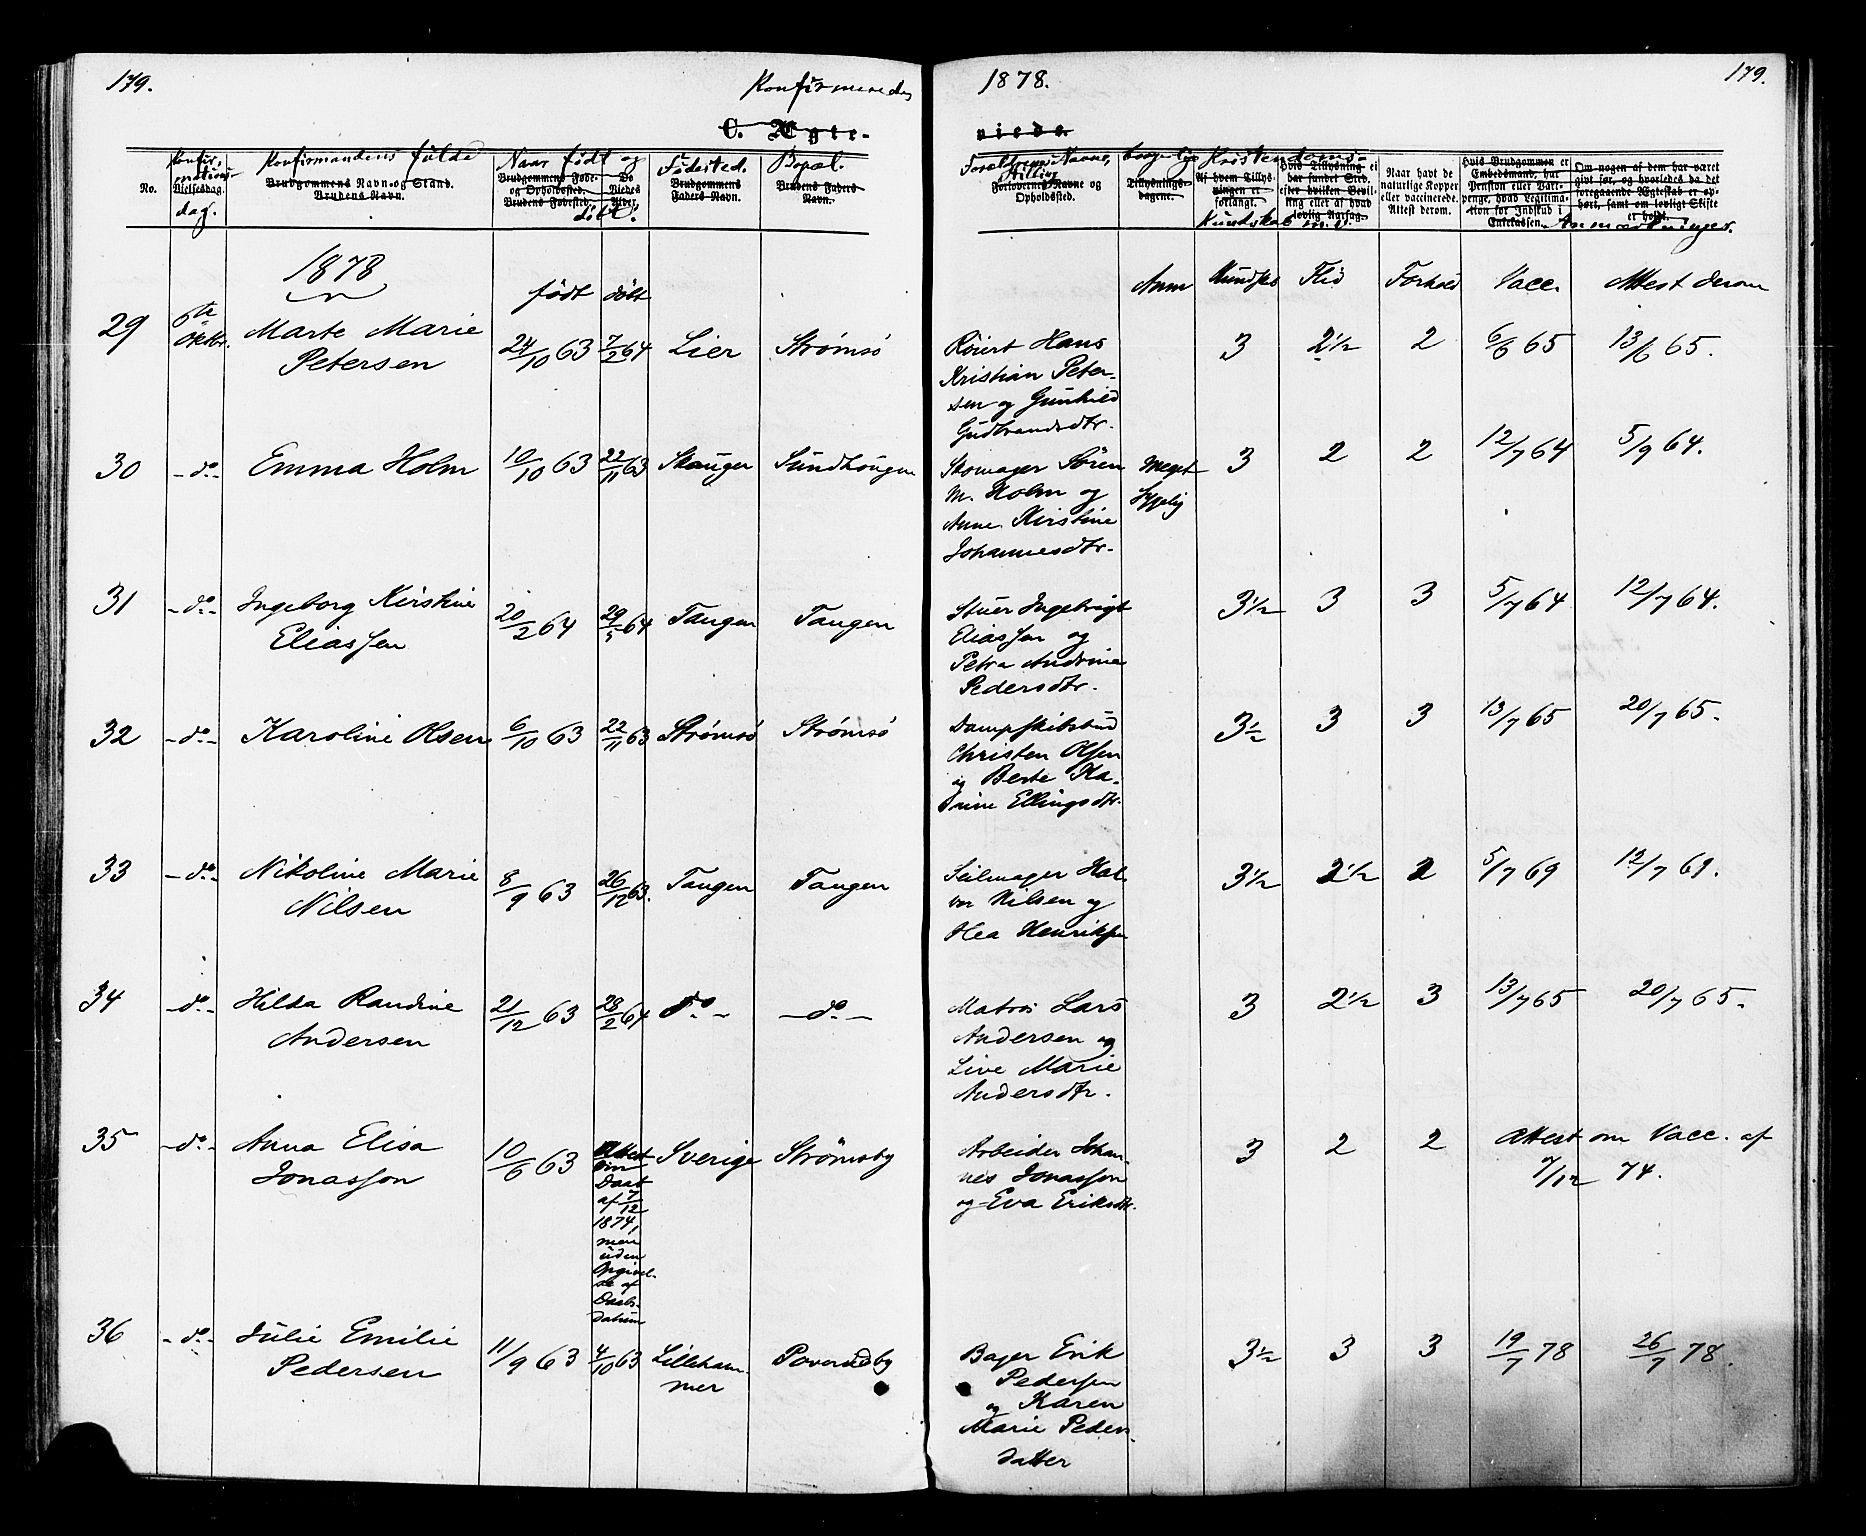 179. Konfirmerede 1878. 179.
C. Ægte- viede.
No.
Konfir-
mations-
Vielsesdag.
dag.
Konfirmandens fulde
Brudgommens Navn og Stand.
Brudens Navn.
Naar født og
Brudgommens Føde-
og Opholdssted.
Brudens Fødested.
døbt.
Do
Vledes
Alder.
Fødested.
Brudgommens
Faders-Navn.
Bopæl.
Brudens Faders
Navn.
Forældrenes Navne,
Stilling
Forlovernes Navne og
Opholdssted.
Tillysnings-
dagene.
Kristendoms-
Af hvem Tillys-
ningen er
forlangt.
Kundskab m. v.
Hvis Tillysning ei
har fundet Sted,
efter hvilken Bevil-
ling eller af hvad
lovlig Aarsag.
Naar havt de
naturlige Kopper
eller vaccinerede.
Altest derom.
Hvis Brudgommen er
Embedsmand, har
Pension eller Vart-
penge, hvad Legitima-
tion for Indskud i
Enkekassen.
Om nogen af dem har været
gift før, og hvorledes da det
foregaaende Ægteskab er op-
hørt, samt om lovligt Skifte
er holdt.
Anmærkninger.
1878
født døbt Anm Kundsk Flid Forhold Vacc. Attest derom
29 6te Oktbr. Marte Marie 24/10 63 7/2 64 Lier Strømsø Røiert Hans 3 2½ 2 6/6 65 13/6 65.
Petersen Kristian Peter-
sen og Gunhild
Gudbrandsdtr.
30 -do.- Emma Holm 10/10 63 22/11 63 Skauger Sundhougen Skomager Søren Meget 3 2 2 12/7 64 5/9 64.
M. Holm og Sygelig
Anne Kirstine
Johannesdtr.
31 -do.- Ingeborg Kirstine 20/2 64 29/5 64 Tangen Tangen Stuer Ingebrigt 3½ 3 3 5/7 64 12/7 64.
Eliassen Eliassen og
Petra Andrine
Pedersdtr.
32 -do.- Karoline Olsen 6/10 63 22/11 63 Strømsø Strømsø Dampskibstud 3½ 3 3 13/7 65 20/7 65.
Christen Olsen
og Berte Ka-
trine Ellingsdtr.
33 -do.- Nikoline Marie 8/9 63 26/12 63. Tangen Tangen Seilmager Hal- 3½ 2½ 2 5/7 69 12/7 69.
Nilsen vor Nilsen og
Hea Henriksen
34 -do.- Hilda Randine 21/12 63 28/2 64 do.- -do.- Matros Lars 3 2½ 3 13/7 65 20/7 65.
Andersen Andersen og
Live Marie
Andersdtr.
35 -do.- Anna Elisa 10/6 63 Attest Sverige Strømsby Arbeider Johan- 3 2 2 Attest om Vacc. af
Jonasson om nes Jonasson 7/12 74.
Daab og Eva Eriksdtr.
af 7/12
1874,
men
uden
Opgivel-
se af
Daabs-
datum
36 -do.- Julie Emilie 11/9 63 4/10 63 Lilleham- Poverudby Bager Erik 3½ 3 3 19/7 78 26/7 78.
Pedersen mer Pedersen
og Karen
Marie Peders-
datter